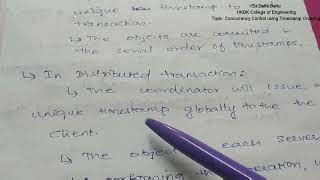 Dr.Salfa Banu
HKBK College of Engineering
Topic: Concurrency Control using Timestamp Ordering
unique timestamp to
transaction.
↳ The objects are commited in
the serial order of timestamps.
↳ In Distributed transaction:
↳ The coordinator will issue a
unique timestamp globally to the the
client.
↳ The object each server
performing the operation,